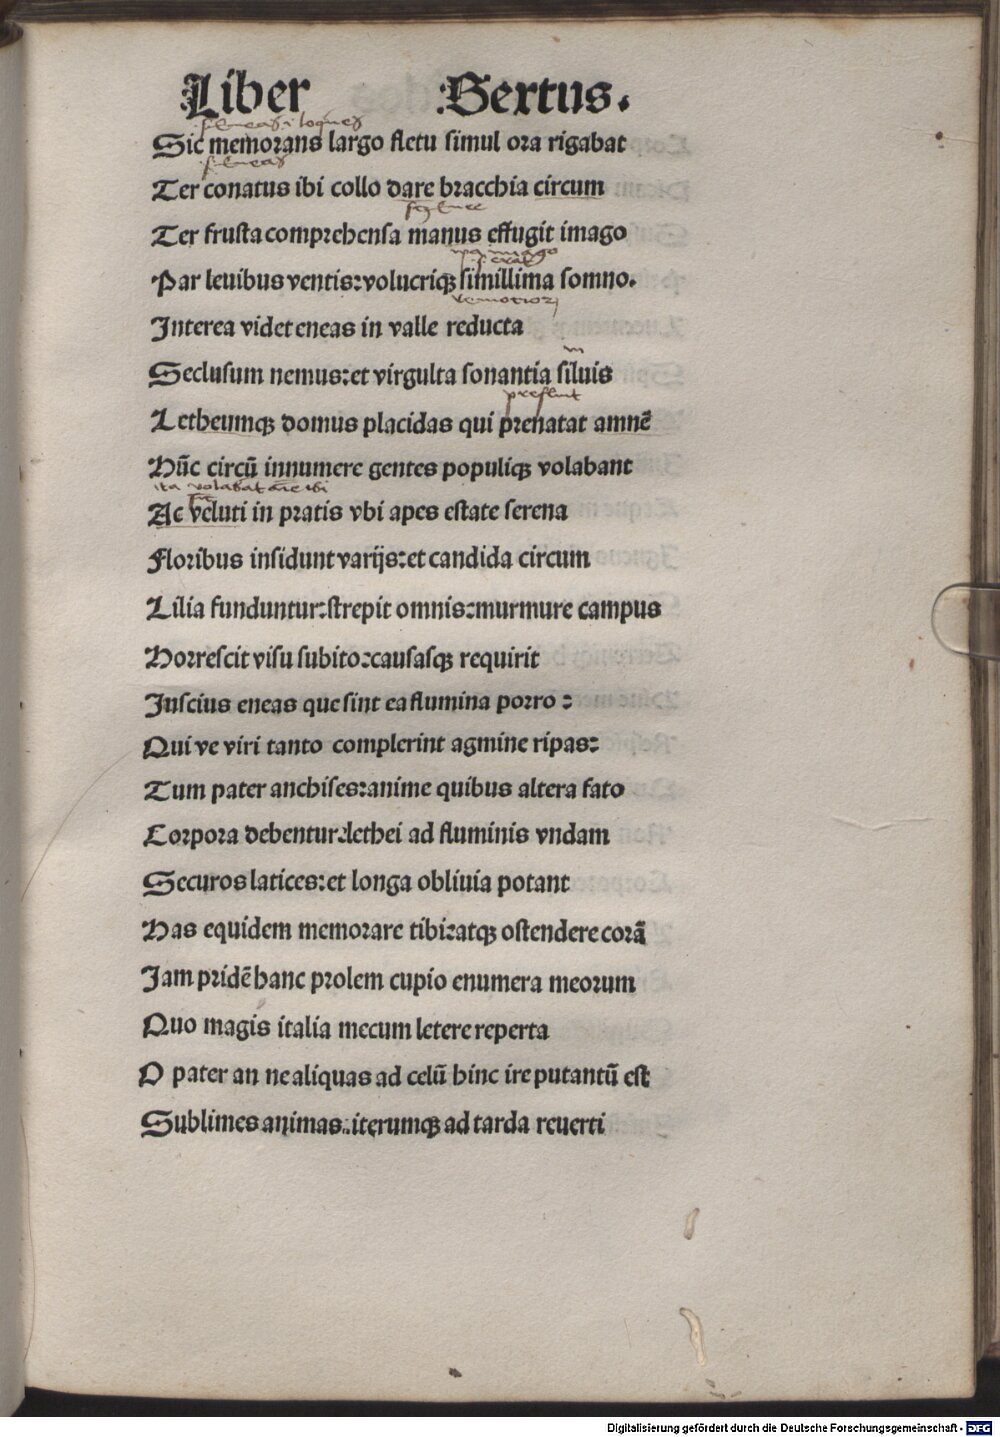 Liber Sextus.
s. eneas .i. loquens
Sic memorans largo fletu simul ora rigabat
s. eneas
Ter conatus ibi collo dare bracchia circum
Ter frusta comprehensa manus effugit imago
ipa imago
s. erat
Par leuibus ventis:volucriq; simillima somno.
remotiori
Interea videt eneas in valle reducta
in
Seclusum nemus:et virgulta sonantia siluis
prefluit
Letheumq; domus placidas qui prenatat amnē
Hūc circū innumere gentes populiq; volabant
ita volabāt aīe ibi
Ac veluti in pratis vbi apes estate serena
Floribus insidunt varijs:et candida circum
Lilia funduntur:strepit omnis:murmure campus
Horrescit visu subito:causasq; requirit
Inscius eneas que sint ea flumina porro :
Qui ve viri tanto complerint agmine ripas:
Tum pater anchises:anime quibus altera fato
Corpora debentur:lethei ad fluminis vndam
Securos latices:et longa obliuia potant
Has equidem memorare tibi:atq; ostendere corā
Iam pridē hanc prolem cupio enumera meorum
Quo magis italia mecum letere reperta
O pater an ne aliquas ad celū hinc ire putantū est
Sublimes animas:.iterumq; ad tarda reuerti
Digitalisierung gefördert durch die Deutsche Forschungsgemeinschaft - DFG